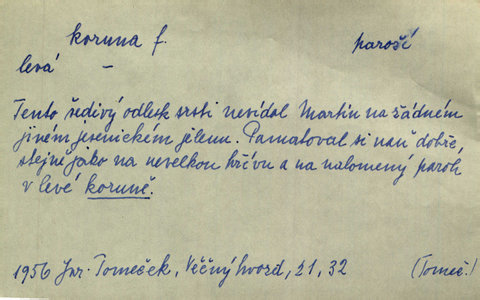 koruna f. paroší
levá –
Tento šedivý odlesk srsti nevídal Martin na žádném
jiném jesenickém jelenu. Pamatoval si naň dobře,
stejně jako na nevelkou hřívu a na nalomený paroh
v levé koruně.
1956 Jar. Tomeček, Věčný hvozd, 21, 32 (Tomeč.)